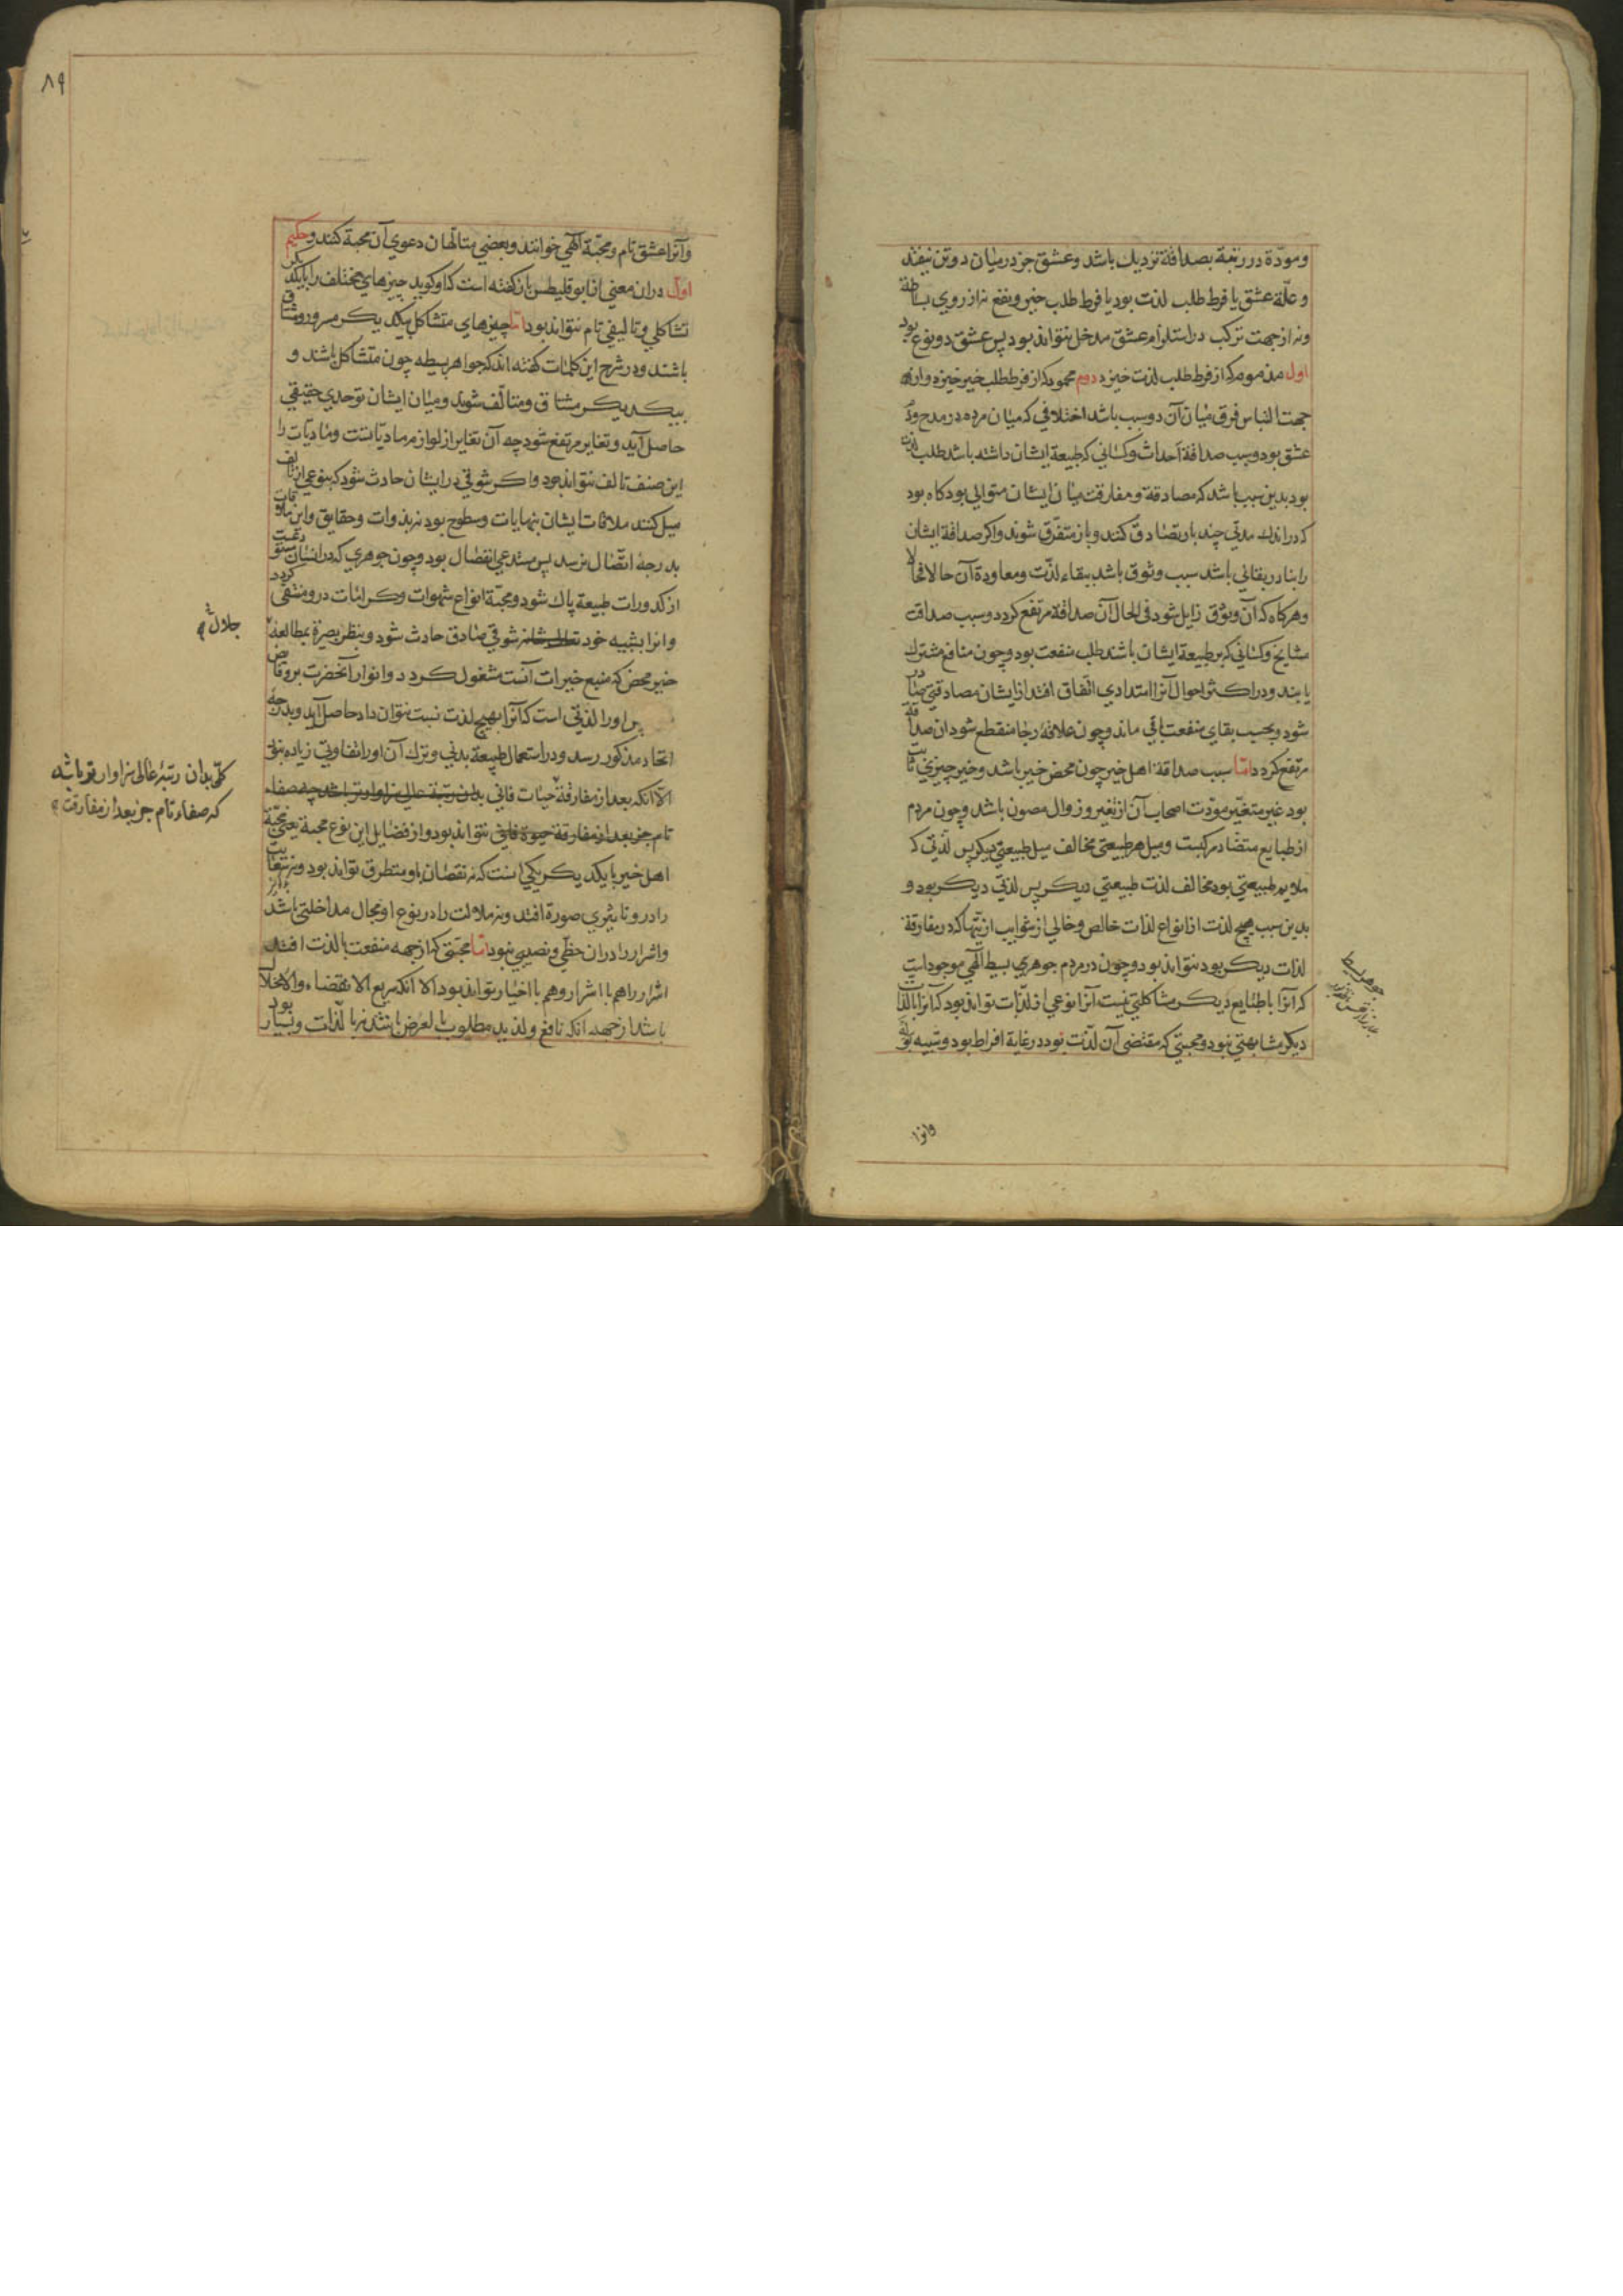 ومودّة در رتبة بصداقة نزدیك باشد وعشق جز در میان دو تن نیفتد
و علّة عشق یا فرط طلب لذت بود یا فرط طلب خیر و نفع نه از روی بساطة
ونه از جهت ترکب در استلزام عشق مدخل نتواند بود پس عشق دو نوع بود
اول مذموم که از فرط طلب لذت خیزد دوم محمود که از فرط طلب خیر خیزد و از
جهت التباس فرق میان آن دو سبب باشد اختلافی که میان مردم در مدح وذم
عشق بود و سبب صداقة احداث و کسانی که طبیعة ایشان داشته باشد طلب لذت
بود بدین سبب باشد که مصادقة و مفارقت میان ایشان متوالی بود کاه بود
که در اندك مدتی چند بار تصادق کنند و باز متفرق شوند و اکر صداقة ایشان
را نادر بقائی باشد سبب وثوق باشد ببقاء لذّت ومعاودة آن حالا فحالا
وهرکاه که آن وثوق زایل شود فی الحال آن صداقة مرتفع کردد و سبب صداقت
مشایخ و کسانی که بر طبیعة ایشان باشند طلب منفعت بود و چون منافع مشترك
یابند و در اکثر احوال آنرا امتدادی اتّفاق افتد از ایشان مصادقتی صادر
شود و بحسب بقای منفعت باقی ماند و چون علاقهٔ رجا منقطع شود ان صداقة
مرتفع کردد امّا سبب صداقة اهل خیر چون محض خیر باشد و خیر چیزی ثابت
بود غیر متغیّر مودّت اصحاب آن از تغیر و زوال مصون باشد و چون مردم
از طبایع متضاد مرکبست ومیل هر طبیعتی مخالف میل طبیعتی دیکر پس لذّتی که
ملایم طبیعتی بود مخالف لذت طبیعتی دیکر پس لذتی دیکر بود و
بدین سبب هیچ لذت از انواع لذات خالص و خالی از شوایب اذیتها که در مفارقة
لذات دیکر بود نتواند بود و چون در مردم جوهری بسیط آلهی موجود است
که آنرا با طبایع دیکر مشاکلتی نیست آنرا نوعی از لذّات تواند بود که آنرا با لذات
دیکر مشابهتی نبود و محبتی که مقتضی آن لذّت بود در غایة افراط بود و شبیه بوله
جوهر بسیط
وانرا
۸۹
وآنرا عشق تام ومحبّة آلهی خوانند و بعضی متالّهان دعوی آن محبة کنند و حکیم
اول دران معنی از ابوقلیطس باز کفته است که او کوید چیزهای مختلف را با یکدیکر
تشاکلی و تالیفی تام نتواند بود امّا چیزهای متشاکل بیکدیکر مسرور و مشتاق
باشند و در شرح این کلمات کفته اند که جواهر بسیطه چون متشاکل باشند و
بیکدیکر مشتاق ومتالّف شوند و میان ایشان توحدی حقیقی
حاصل آید و تغایر مرتفع شود چه آن تغایر از لوازم مادیّاتست و مادیّات را
این صنف تالف نتواند بود و اکر شوقی در ایشان حادث شود که بنوعی از تالف
میل کنند ملاقات ایشان بنهایات وسطوح بود نه بذوات و حقایق و این ملاقات
بدرجهٔ اتّصال نرسد پس مستدعی انفصال بود و چون جوهری که در انسان مستودعست
از کدورات طبیعة پاك شود و محبّة انواع شهوات و کرامات درو منتفی کردد
وانرا بشبیه خود تعالی شانه شوقی صادق حادث شود و بنظر بصیرة بمطالعهٔ
جلال
خیر محض که منبع خیرات آنست مشغول کردد و انوار آنحضرت برو فایض
پس اورا لذّتی است که آنرا بهیچ لذت نسبت نتوان داد حاصل آید و بدرجهٔ
اتحاد مذکور رسد و در استعمال طبیعة بدنی و ترك آن اورا تفاوتی زیاده نبود
الّا انکه بعد از مفارقة حیات فانی بدان رتبة عالی سزاوارتر باشد چه صفاء
کلّی بدان رتبهٔ عالی سزاوارتر باشد
که صفاء تام جز بعد از مفارقت
تام جز بعد از مفارقة حیوة فانی نتواند بود و از فضایل این نوع محبة یعنی محبّة
اهل خیر با یکدیکر یکی انست که نه نقصان باو متطرق تواند بود و نه سعایت
را در و تاثیری صورة افتد و نه ملالت را در نوع او مجال مداخلتی باشد
واشرار را دران حظّی و نصیبی نبود امّا محبّتی که از جهه منفعت یا لذت افتد
اشرار را هم با اشرار و هم با اخیار تواند بود الا انکه سریع الانقضاء والانحلال
باشد از جهه انکه نافع و لذید مطلوب بالعرض باشند نه بالذّات و بسیار بود